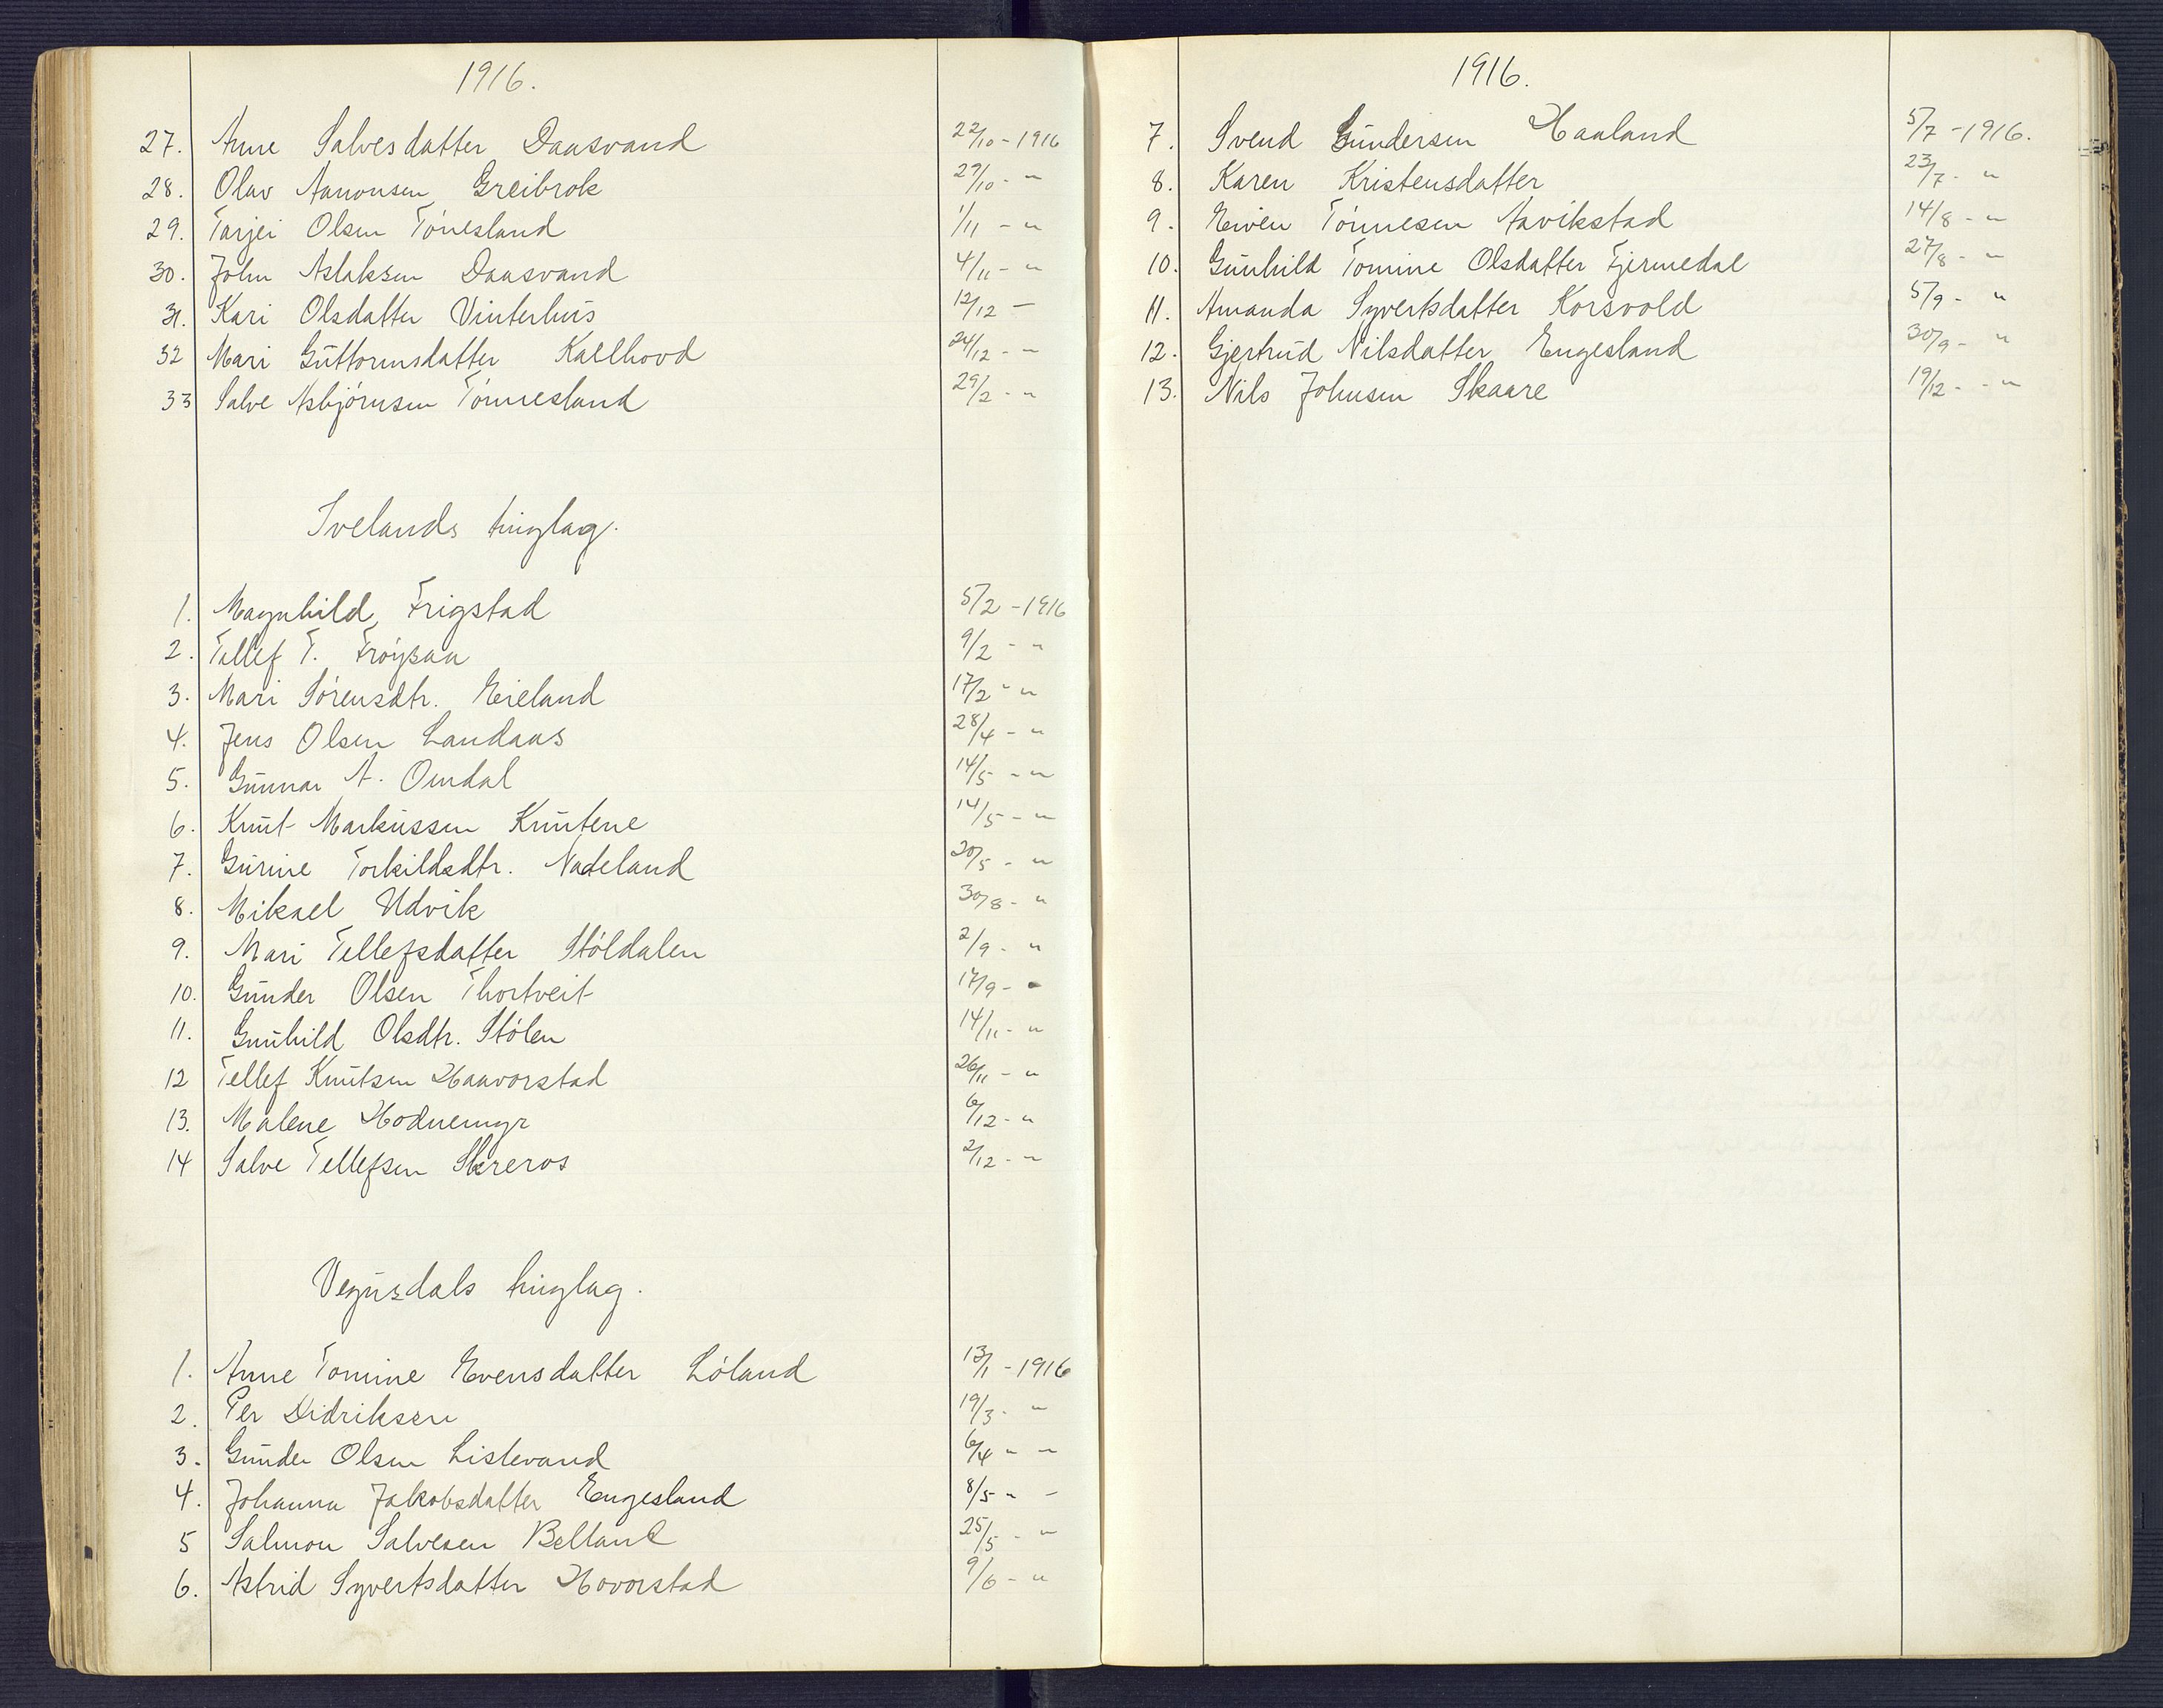 1916.
27. Anne Salvesdatter Daasvand 22/10 - 1916
28. Olav Aanonsen Greibrok 27/10 - "
29. Tarjei Olsen Tónesland 1/11 - "
30. John Aslaksen Daasvand 4/11 - "
31. Kari Olsdatter Vinterhus 12/12 -
32 Mari Guttormsdatter Kallhovd 24/12 - "
33 Salve Asbjórnsen Tónnesland 29/2 - "
Ivelands tinglag.
1. Magnhild Frigstad 5/2 - 1916
2. Tallef T. Fróysaa 9/2 - "
3. Mari Sórensdtr. Eieland 17/2 - "
4. Jens Olsen Landaas 28/4 - "
5. Gunnar A. Omdal 14/5 - "
6. Knut Markussen Knutene 14/5 - "
7. Gurine Torkildsdtr. Nateland 20/5 - "
8. Mikael Udvik 30/8 - "
9. Mari Tellefsdatter Stóldalen 2/9 - "
10. Gunder Olsen Thortveit 17/9 - "
11. Gunhild Olsdtr. Stólen 14/11 - "
12 Tellef Knutsen Haavorstad 26/11 - "
13. Malene Hodnemyr 6/12 - "
14 Salve Tellefsen Skreros 2/12 - "
Vegusdals tinglag.
1. Anne Tomine Evensdatter Lóland 13/1 - 1916
2. Per Didriksen 19/3 - "
3. Gunder Olsen Listevand 6/4 - "
4. Johanna Jakobsdatter Engesland 8/5 " -
5 Salmon Salvesen Belland 25/5 - "
6. Astrid Syvertsdatter Hovorstad 9/6 - "
1916.
7. Svend Gundersen Haaland 5/7 - 1916.
8. Karen Kristensdatter 23/7 - "
9. Eiven Tónnesen Aavikstad 14/8 - "
10. Gunhild Tomine Olsdatter Fjermedal 27/8 - "
11. Amanda Syvertsdatter Korsvold 5/9 - "
12. Gjertrud Nilsdatter Engesland 30/9 - "
13. Nils Johnsen Skaare 19/12 - "